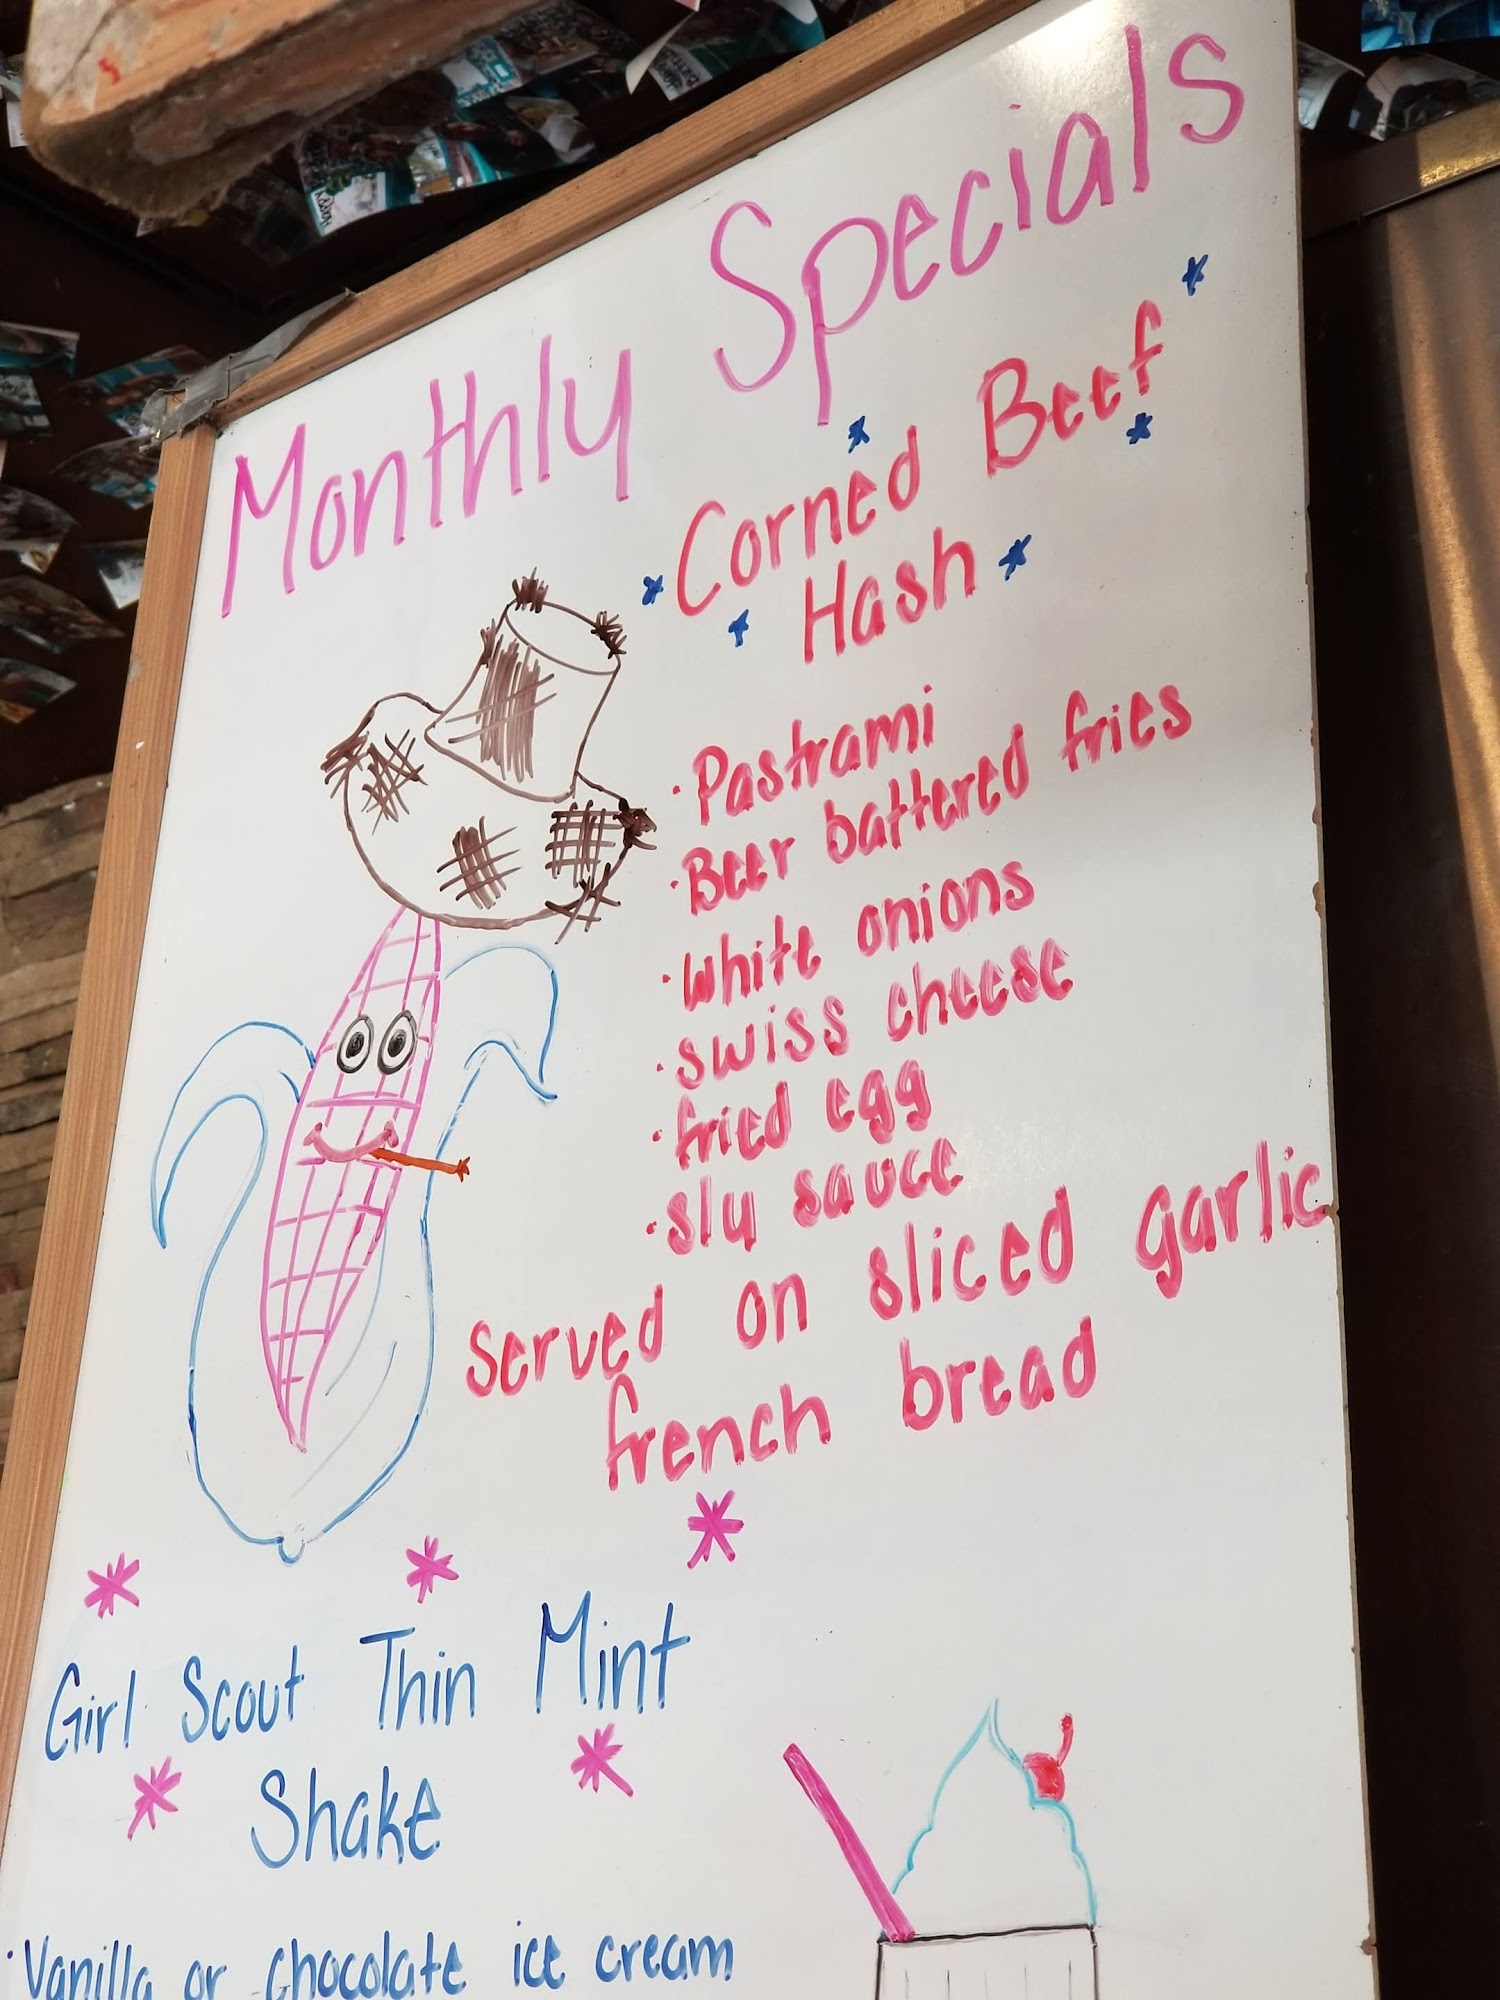 Monthly Specials
Corned Beef
Hash
· Pastrami
· Beer battered fries
· White onions
· swiss cheese
· fried egg
· slu sauce
served on sliced garlic
french bread
Girl Scout Thin Mint
Shake
· Vanilla or chocolate ice cream